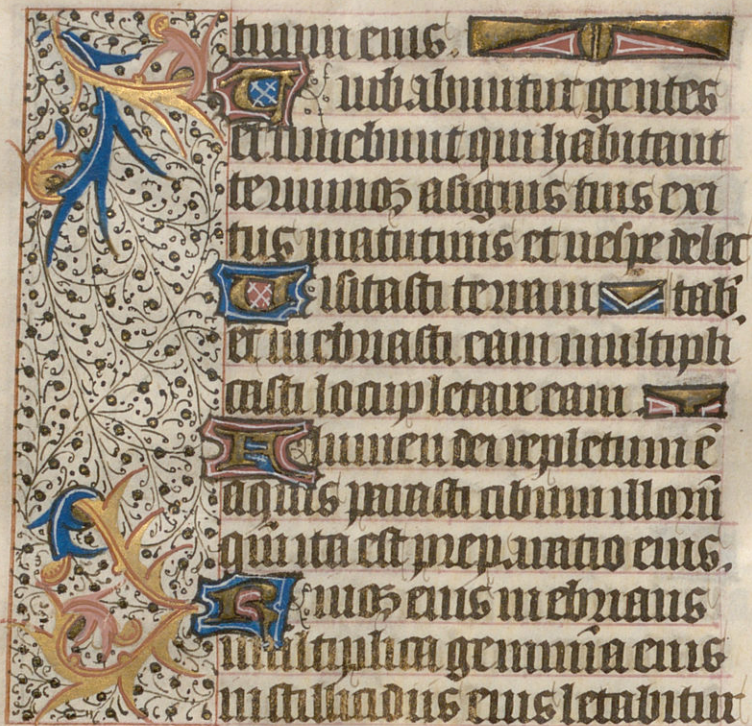 tuum eius.
Turbabuntur gentes
et timebunt qui habitant
terminoꝫ a signis tuis exi
tus matutinis et uespe delec
Uisitasti terram tab̃
et inebriasti eam multipli
casti locupletare eam
Flumen dei repletum ē
aquis parasti cibum illorū
qm̄ ita est preparatio eius.
Riuoꝫ eius inebrians
multiplica genimīa eius
in stillicidiis eius letabitur